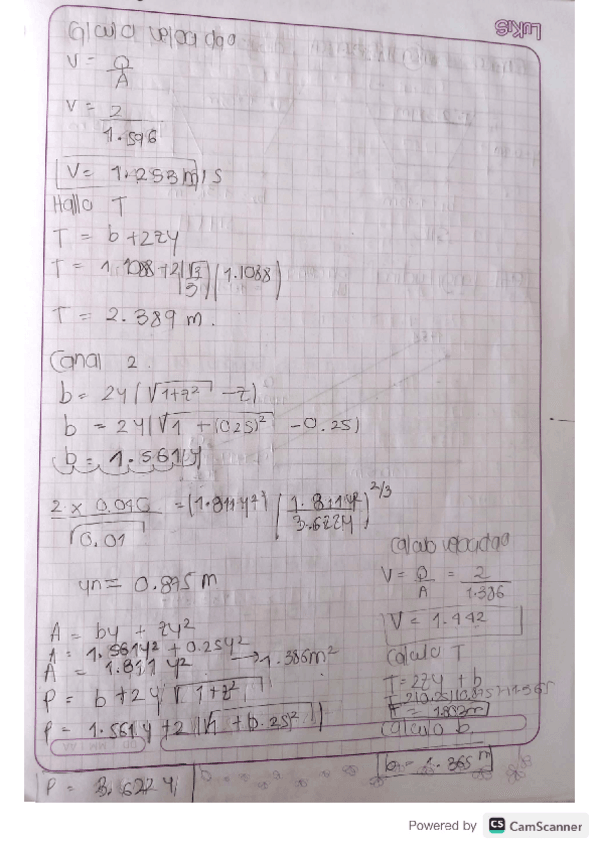 LUKIS
Calculo velocidad
V = Q/A
V = 2/1.596
V = 1.253 m/s
Hallo T
T = b + 2zy
T = 1.1088 + 2(√3/3)(1.1088)
T = 2.389 m.
Canal 2.
b = 2y(√1+z² - z)
b = 2y(√1 + (0.25)² - 0.25)
b = 1.561y
2 x 0.040/√0.01 = (1.811y²) (1.811y²/3.622y)^2/3
yn = 0.875 m
A = by + zy²
A = 1.561y² + 0.25y²
A = 1.811 y² → 1.386m²
P = b + 2y √1+z²
P = 1.561y + 2y√1 + 0.25²
P = 3.622y
Calculo velocidad
V = Q/A = 2/1.386
V = 1.442
Calculo T
T = 2zy + b
T = 1.802m
Calculo b
b = 1.365 m
Powered by CS CamScanner